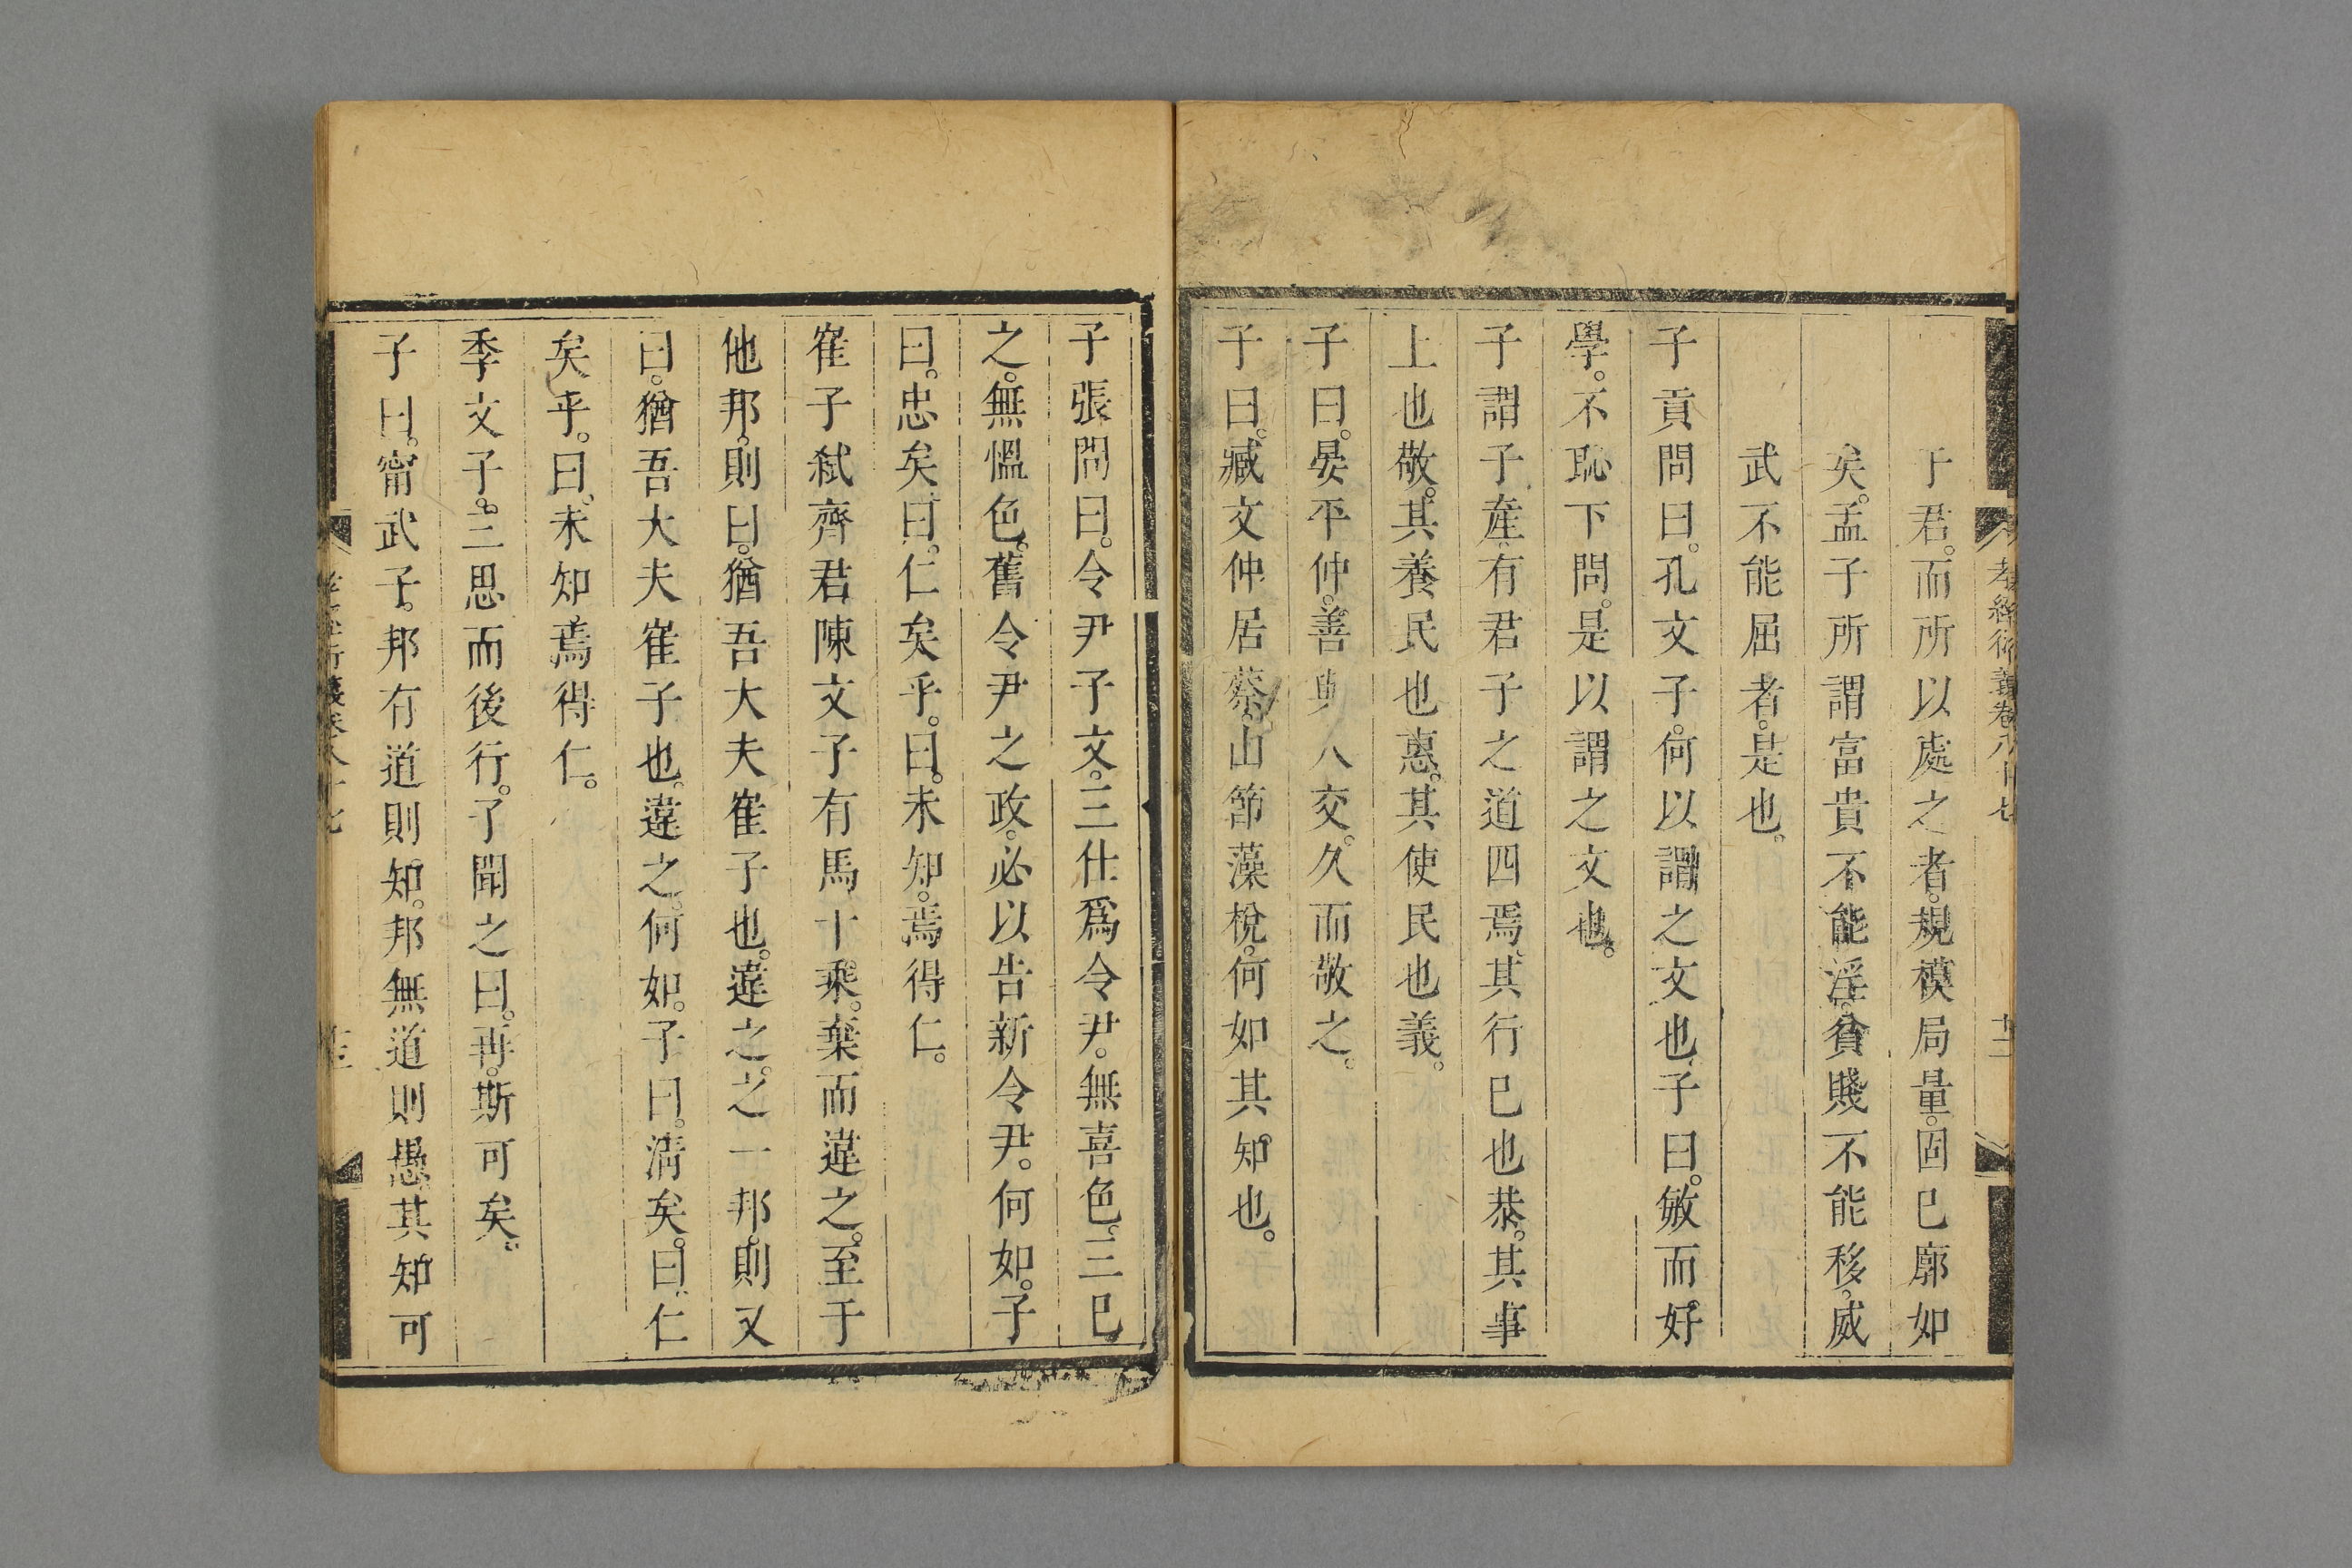 孝經衍義卷八十七
十二
于君。而所以處之者。規模局量。固已廓如
矣。孟子所謂富貴不能淫。貧賤不能移。威
武不能屈者。是也。
子貢問曰。孔文子。何以謂之文也。子曰。敏而好
學。不恥下問。是以謂之文也。
子謂子產。有君子之道四焉。其行已也恭。其事
上也敬。其養民也惠。其使民也義。
子曰。晏平仲。善與人交。久而敬之。
子曰。臧文仲居蔡。山節藻梲。何如其知也。
子張問曰。令尹子文。三仕爲令尹。無喜色。三已
之。無慍色。舊令尹之政。必以告新令尹。何如。子
曰。忠矣。曰。仁矣乎。曰。未知。焉得仁。
崔子弑齊君。陳文子有馬十乘。棄而違之。至于
他邦。則曰。猶吾大夫崔子也。違之。之一邦。則又
曰。猶吾大夫崔子也。違之。何如。子曰。淸矣。曰。仁
矣乎。曰。未知焉得仁。
季文子。三思而後行。子聞之曰。再。斯可矣。
子曰。甯武子。邦有道則知。邦無道則愚。其知可
孝經衍義卷八十七
十三